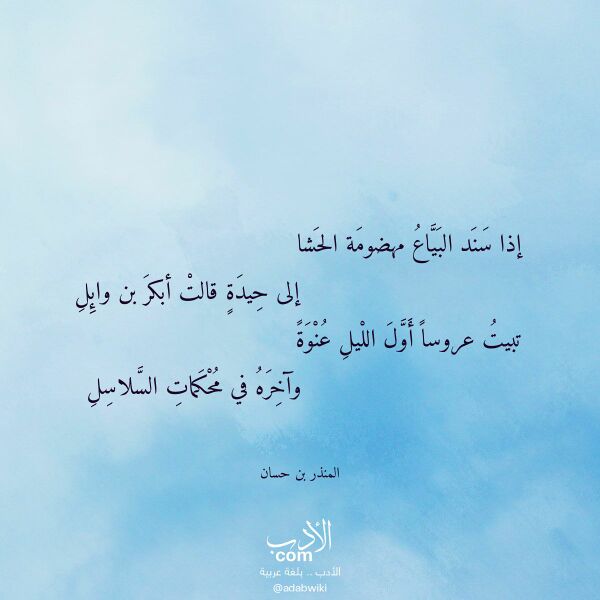 إذا سَنَد البَيَّاعُ مهضومَة الحَشا
إلى حِيدَةٍ قالتْ أبكرَ بن وايِٕلِ
تبيتُ عروساً أَوَّلَ اللْيلِ عُنْوَةً
وآخِرَهُ في مُحْكَماتِ السَّلاسِلِ
المنذر بن حسان
الأدب
com
الأدب .. بلغة عربية
@adabwiki